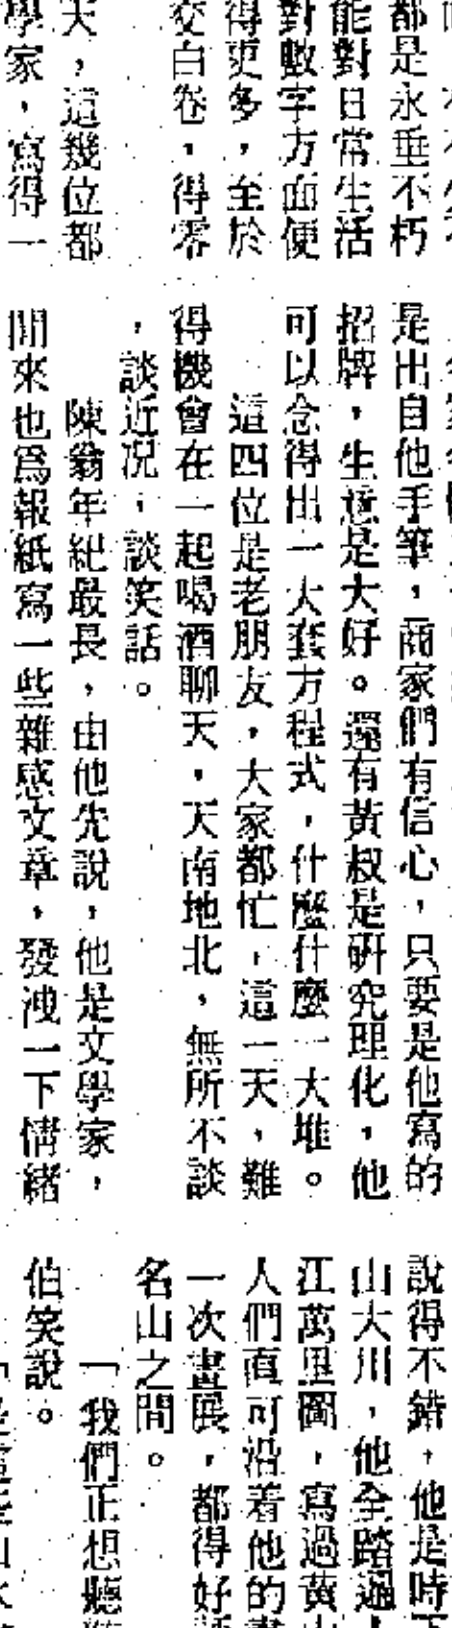 都是永垂不朽
能對日常生活
對數字方面便
得更多，至於
交白卷，得零
天，這幾位都
學家，寫得一
是出自他手筆，商家們有信心，只要是他寫的
招牌，生意是大好。還有黃叔是研究理化，他
可以念得出一大套方程式，什麼什麼一大堆。
這四位是老朋友，大家都忙，這一天，難
得機會在一起喝酒聊天，天南地北，無所不談
，談近況，談笑話。
陳翁年紀最長，由他先說，他是文學家，
閒來也爲報紙寫一些雜感文章，發洩一下情緒
說得不錯，他是時下
山大川，他全踏遍
江萬里圖，寫過黃山
人們直可沿着他的畫
一次畫展，都得好
名山之間。
「我們正想聽
伯笑說。